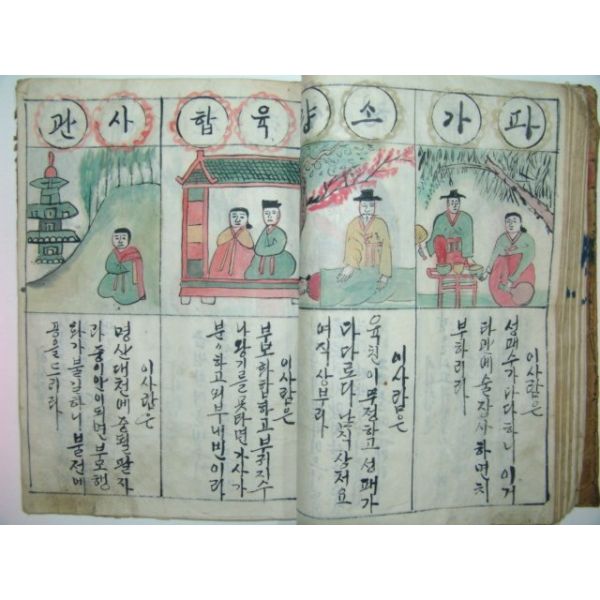 파가
이사람은
성패수가다다하니이거
술장사하면치
부하리라
소
이사람은
육친이무정하고성패가
다다르다 상처요
여직상부라
육합
이사람은
부모화합하고부귀지수
나왕기를못타면가사가
하고 이라
사관
이사람은
명산대천에중될팔자
라중이안이되면부모행
화가불일하니불전에
공을드리라